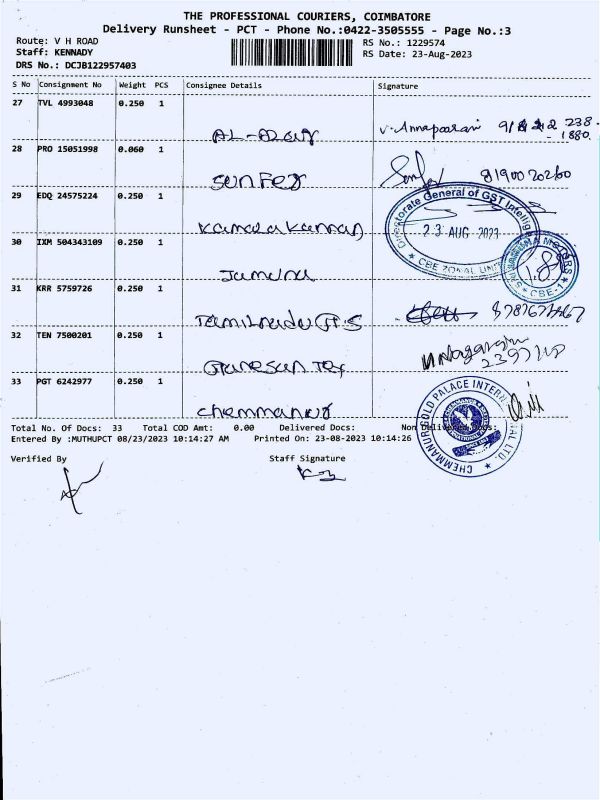 THE PROFESSIONAL COURIERS, COIMBATORE
Delivery Runsheet - PCT - Phone No.:0422-3505555 - Page No.:3
Route: V H ROAD
Staff: KENNADY
DRS No.: DCJB122957403
RS No.: 1229574
RS Date: 23-Aug-2023
S No Consignment No Weight PCS Consignee Details Signature
27 TVL 4993048 0.250 1
28 PRO 15051998 0.060 1
sunfes
29 EDQ 24575224 0.250 1
Directorate General of GST Intelligence
23 AUG 2023
CBE ZONAL UNIT
kamalakannan
30 IXM 504343109 0.250 1
Jamuna
31 KRR 5759726 0.250 1
Tamilnadu
32 TEN 7500201 0.250 1
Ganesan Tex
33 PGT 6242977 0.250 1
chemmanur
CHEMMANUR GOLD PALACE INTERNATIONAL LTD.
Total No. Of Docs: 33 Total COD Amt: 0.00 Delivered Docs: Non Delivered Docs:
Entered By :MUTHUPCT 08/23/2023 10:14:27 AM Printed On: 23-08-2023 10:14:26
Verified By Staff Signature